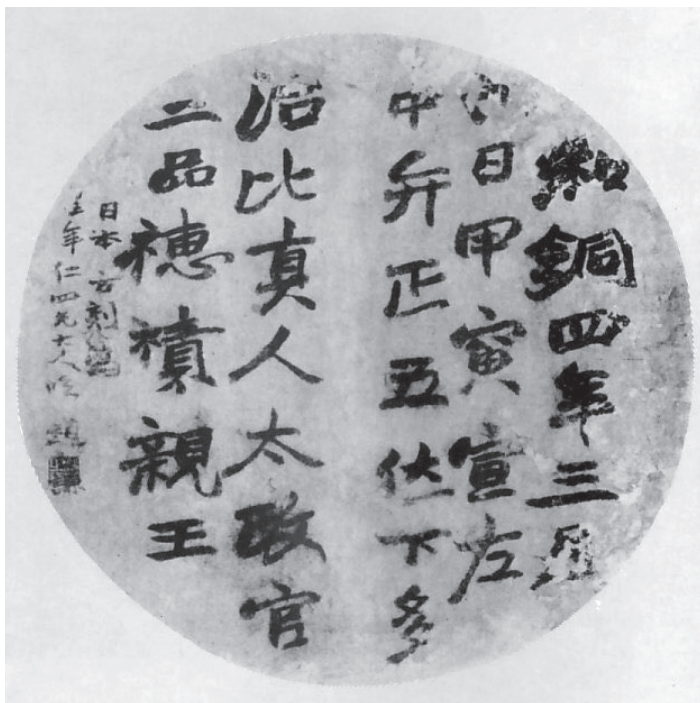 和銅四年三月
日甲寅宣左
中弁正五位下多
治比真人太政官
二品穂積親王
日本古刻
年仁四兄大人 趙